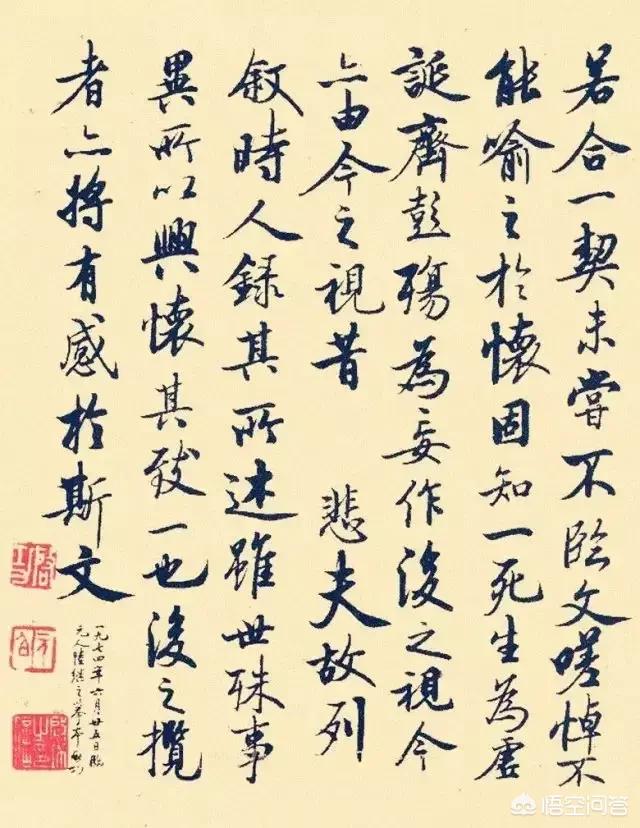 若合一契未嘗不臨文嗟悼不
能喻之於懷固知一死生為虛
誕齊彭殤為妄作後之視今
亦由今之視昔 悲夫故列
敘時人錄其所述雖世殊事
異所以興懷其致一也後之攬
者亦將有感於斯文
一九七四年六月廿五日臨
元人陸繼之摹本啟功
啟功
悟空问答